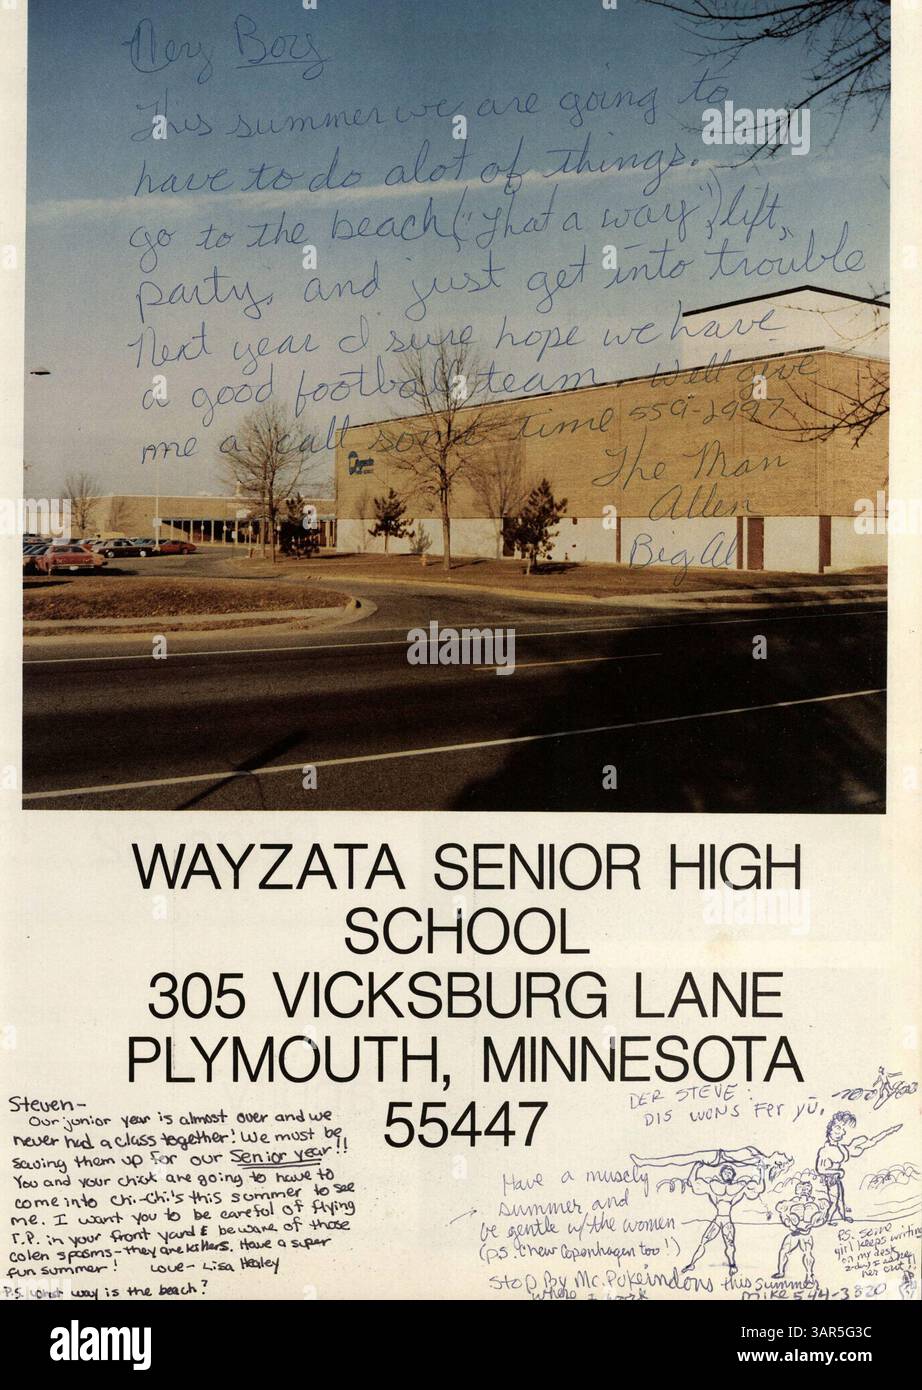 Hey Boy
This summer we are going to
have to do alot of things.
go to the beach ("that a way"), lift,
party, and just get into trouble
Next year I sure hope we have
a good football team. Well give
me a call some time 559-2997
The Man
Allen
Big Al
WAYZATA SENIOR HIGH
SCHOOL
305 VICKSBURG LANE
PLYMOUTH, MINNESOTA
55447
Steven-
Our junior year is almost over and we
never had a class together! We must be
saving them up for our Senior year!!
You and your chick are going to have to
come into Chi-Chi's this summer to see
me. I want you to be careful of flying
T.P. in your front yard & beware of those
colen spasms-they are killers. Have a super
fun summer! Love- Lisa Healey
P.S. what way is the beach?
DER STEVE:
DIS WONS FER YU,
Have a muscly
summer and
be gentle w/the women
(p.s. chew Copenhagen too!)
Stop by Mc. this summer
where I work
Mike 544-3320
P.S. some
girl keeps writing
on my desk
her out!!
alamy
Image ID: 3AR5G3C
www.alamy.com